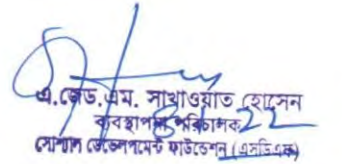 এ.জেড.এম. সাখাওয়াত হোসেন
ব্যবস্থাপনা পরিচালক
সোশ্যাল ডেভেলপমেন্ট ফাউন্ডেশন (এসডিএফ)